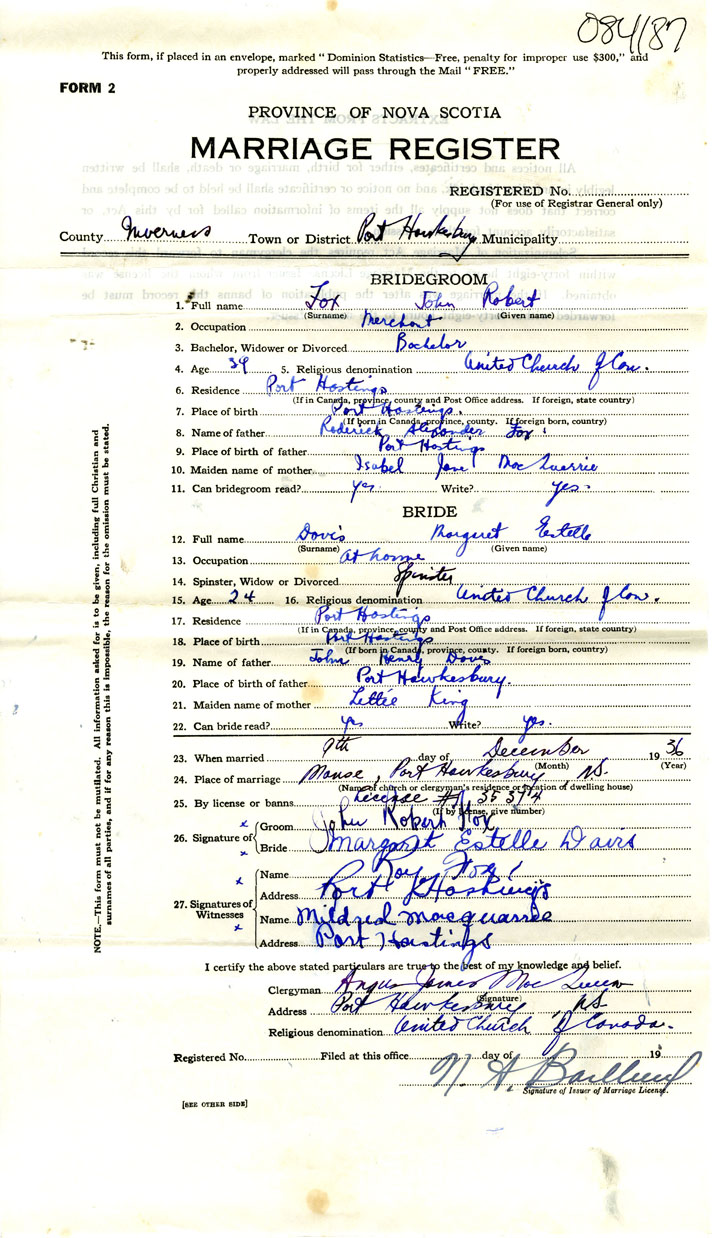 084187
This form, if placed in an envelope, marked " Dominion Statistics—Free, penalty for improper use $300," and
properly addressed will pass through the Mail " FREE."
FORM 2
PROVINCE OF NOVA SCOTIA
MARRIAGE REGISTER
REGISTERED No.
(For use of Registrar General only)
County Inverness Town or District Port Hawkesbury Municipality
BRIDEGROOM
1. Full name Fox John Robert
(Surname) (Given name)
2. Occupation Merchant
3. Bachelor, Widower or Divorced Bachelor
4. Age 39 5. Religious denomination United Church of Can.
6. Residence Port Hastings
(If in Canada, province, county and Post Office address. If foreign, state country)
7. Place of birth Port Hastings.
(If born in Canada, province, county. If foreign born, country)
8. Name of father Roderick Alexander Fox
9. Place of birth of father Port Hastings
10. Maiden name of mother Isabel Jane MacQuarrie
11. Can bridegroom read? yes. Write? yes.
BRIDE
12. Full name Davis Margaret Estelle
(Surname) (Given name)
13. Occupation At home
14. Spinster, Widow or Divorced Spinster
15. Age 24 16. Religious denomination United Church of Can.
17. Residence Port Hastings
(If in Canada, province, county and Post Office address. If foreign, state country)
18. Place of birth Port Hastings
(If born in Canada, province, county. If foreign born, country)
19. Name of father John Henry Davis
20. Place of birth of father Port Hawkesbury.
21. Maiden name of mother Lettie King
22. Can bride read? yes Write? yes.
23. When married 9th day of December 1936
(Month) (Year)
24. Place of marriage Manse, Port Hawkesbury N.S.
(Name of church or clergyman's residence or location of dwelling house)
25. By license or banns License #
(If by license, give number)
26. Signature of
Groom John Robert Fox
Bride Margaret Estelle Davis
27. Signatures of Witnesses
Name Roy Fox
Address Port Hastings
Name Mildred Macquarrie
Address Port Hastings
I certify the above stated particulars are true to the best of my knowledge and belief.
Clergyman Angus James Mac
(Signature)
Address Port Hawkesbury, N.S.
Religious denomination United Church of Canada.
Registered No. Filed at this office day of 19
N. A.
Signature of Issuer of Marriage License.
[SEE OTHER SIDE]
NOTE.—This form must not be mutilated. All information asked for is to be given, including full Christian and
surnames of all parties, and if for any reason this is impossible, the reason for the omission must be stated.